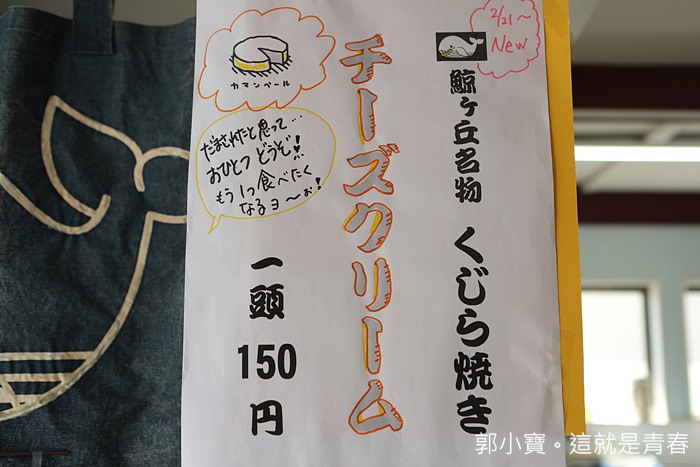 2/21～
New
鯨ヶ丘名物 くじら焼き
チーズクリーム
カマンベール
だまされたと思って…
おひとつ どうぞ！
もう1つ食べたく
なるヨ〜ぉ！
一頭
150
円
郭小寶。這就是青春